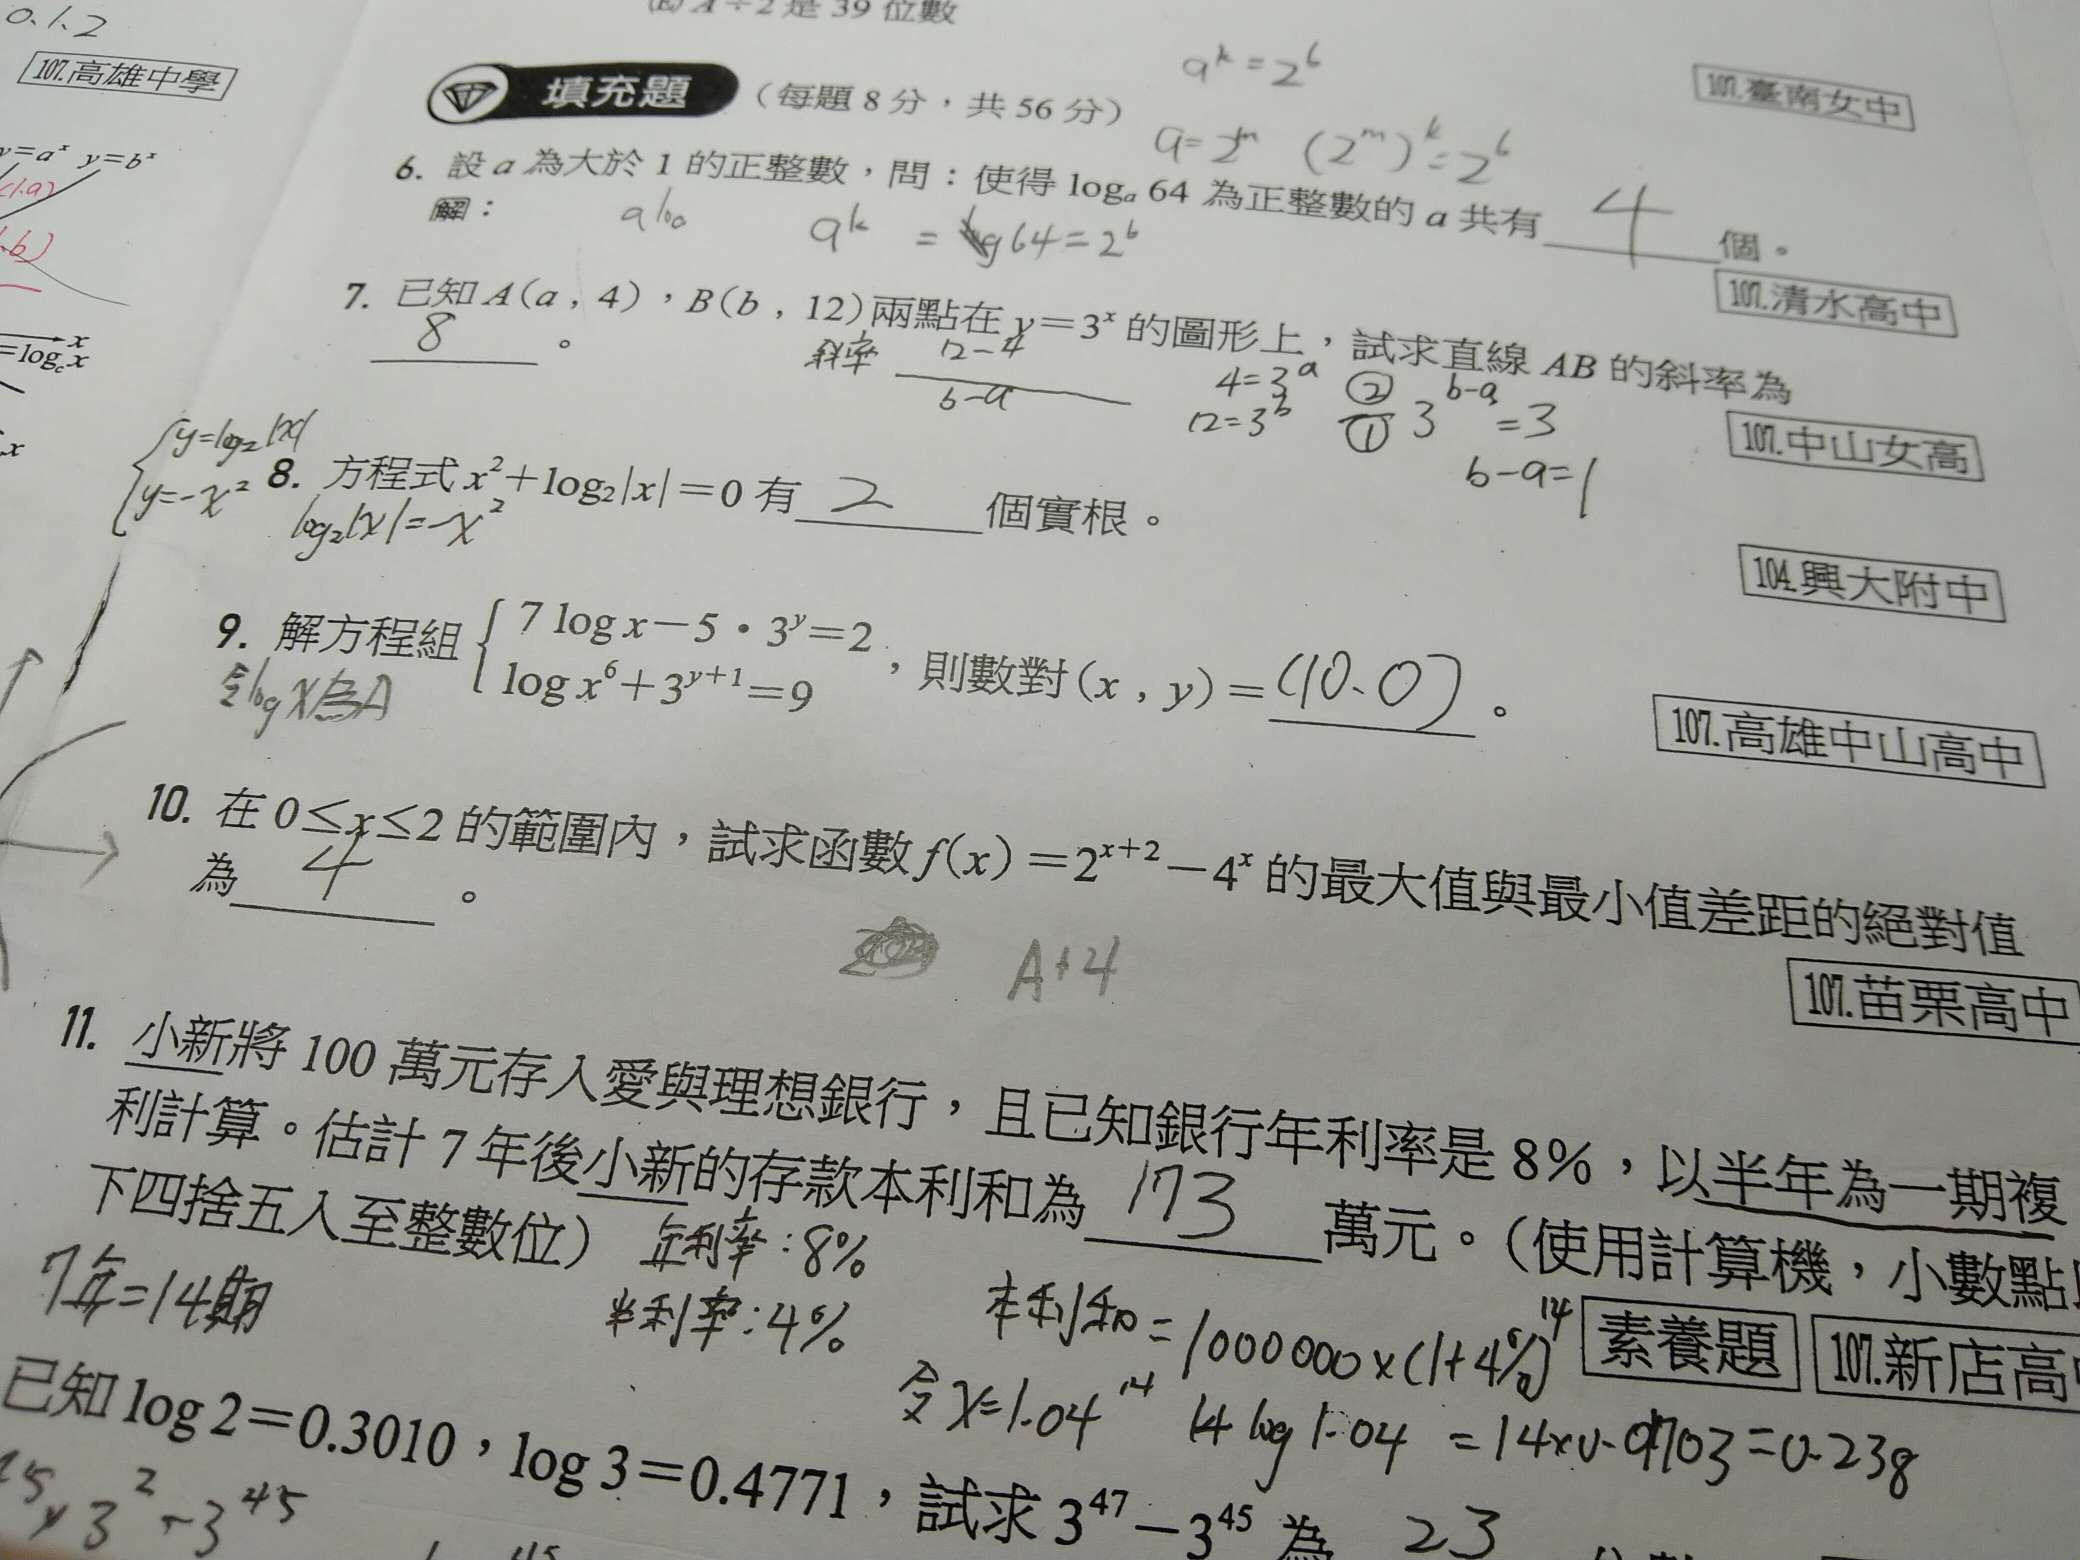 0.1.2
107.高雄中學
y=aˣ y=bˣ
(1.a)
x
=log_c x
x
(E) A÷2 是 39 位數
填充題 (每題 8 分，共 56 分)
aᵏ=2⁶
107.臺南女中
a=2ᵐ (2ᵐ)ᵏ=2⁶
6. 設 a 為大於 1 的正整數，問：使得 logₐ 64 為正整數的 a 共有 4 個。
解：
aᵏ = 64=2⁶
107.清水高中
7. 已知 A(a，4)，B(b，12)兩點在 y=3ˣ 的圖形上，試求直線 AB 的斜率為
8 。
斜率 12-4
b-a
4=3ᵃ ②
12=3ᵇ ① 3ᵇ⁻ᵃ=3
b-a=1
107.中山女高
y=log₂|x|
y=-x²
8. 方程式 x²+log₂|x|=0 有 2 個實根。
log₂|x|=-x²
104.興大附中
9. 解方程組 { 7 log x-5•3ʸ=2
log x⁶+3ʸ⁺¹=9 ，則數對(x，y)=(10.0)。
令log x為A
107.高雄中山高中
10. 在 0≤x≤2 的範圍內，試求函數 f(x)=2ˣ⁺²-4ˣ 的最大值與最小值差距的絕對值
為 4 。
A+4
107.苗栗高中
11. 小新將 100 萬元存入愛與理想銀行，且已知銀行年利率是 8%，以半年為一期複
利計算。估計 7 年後小新的存款本利和為 173 萬元。(使用計算機，小數點
下四捨五入至整數位)
年利率：8%
7年=14期
半利率：4%
本利和=1000000×(1+4%)¹⁴
素養題
107.新店高
令 x=1.04¹⁴ 14 log 1.04 =14×0.01703=0.238
已知 log 2=0.3010，log 3=0.4771，試求 3⁴⁷-3⁴⁵ 為 23
×3²-3⁴⁵